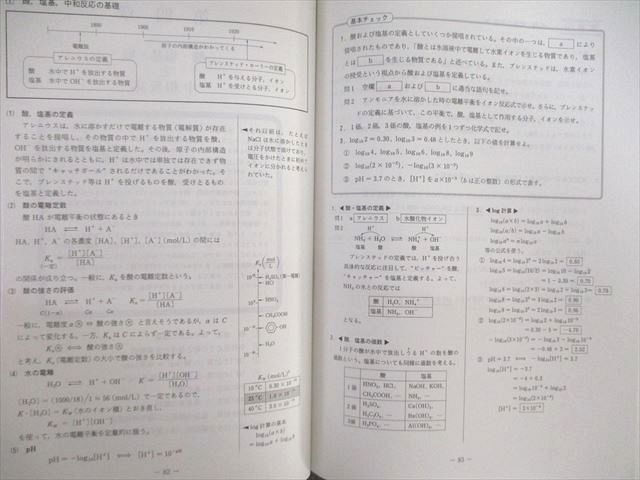 酸，塩基，中和反応の基礎
1800
1900
1920
電離説
原子の内部構造がわかってくる
アレニウスの定義
酸 水中で H⁺ を放出する物質
塩基 水中で OH⁻ を放出する物質
ブレンステッド・ローリーの定義
酸 H⁺ を与える分子，イオン
塩基 H⁺ を受けとる分子，イオン
(1) 酸，塩基の定義
アレニウスは，水に溶かすだけで電離する物質(電解質)が存在
することを提唱し，その物質の中で H⁺ を放出する物質を酸，
OH⁻ を放出する物質を塩基と定義した。その後，原子の内部構造
が明らかにされるとともに，H⁺ は水中では単独では存在できず物
質の間で“キャッチボール”されるだけであることがわかった。そ
こで，ブレンステッド等は H⁺ を投げるものを酸，受けとるもの
を塩基と定義した。
(2) 酸の電離定数
酸 HA が電離平衡の状態にあるとき
HA ⇄ H⁺ + A⁻
HA，H⁺，A⁻ の各濃度 [HA]，[H⁺]，[A⁻] (mol/L) の間には
Kₐ = [H⁺][A⁻] / [HA]
の関係が成り立つ。一般に，Kₐ を酸の電離定数という。
(3) 酸の強さの評価
HA ⇄ H⁺ + A⁻ Kₐ = [H⁺][A⁻] / [HA]
C(1−α) Cα Cα
一般に，電離度 α 大 ⇔ 酸の強さ 大 と言えそうであるが，α は C
によって変化する。一方，Kₐ は C によらず一定である。よって，
Kₐ 大 ⇔ 酸の強さ 大
と考え，Kₐ (電離定数) の大小で酸の強さを比較する。
(4) 水の電離
H₂O ⇄ H⁺ + OH⁻ K = [H⁺][OH⁻] / [H₂O]
[H₂O] = (1000/18)/1 ≒ 56 (mol/L) で一定であるので，
K・[H₂O] = Kw (水のイオン積) とおき直し，
Kw = [H⁺][OH⁻]
を使って，水の電離平衡を定量的に扱う。
(5) pH
pH = −log₁₀[H⁺] ⇔ [H⁺] = 10⁻ᵖᴴ
それ以前は，たとえば
NaCl は水に溶かしただけでは
分子状態で溶けており，
電圧をかけたときに初めて
イオンに分かれると考えら
れていた。
Kₐ (mol/L)
CH₃COOH
H₂CO₃
Kw (mol/L)²
10℃
25℃
40℃
log 計算の基本
log₁₀(a×b)
= log₁₀a + log₁₀b
— 82 —
基本チェック
1. 酸および塩基の定義としていくつか提唱されている。その中の一つは， a により
提唱されたものであり，「酸とは水溶液中で電離して水素イオンを生じる物質であり，塩基
とは b を生じる物質である」と述べている。また，ブレンステッドは，水素イオン
の授受という視点から酸および塩基を定義している。
問1 空欄 a および b に適当な語句を記せ。
問2 アンモニアを水に溶かした時の電離平衡をイオン反応式で示せ。さらに，ブレンステッ
ドの定義に基づいて，この平衡で，酸，塩基として作用する分子，イオンを示せ。
2. 1価，2価，3価の酸，塩基の例を1つずつ化学式で記せ。
3. log₁₀2 = 0.30，log₁₀3 = 0.48 としたとき，以下の値を計算せよ。
① log₁₀4，log₁₀5，log₁₀6，log₁₀8，log₁₀9
② log₁₀(2×10⁻⁵)，−log₁₀(3×10⁻³)
③ pH = 3.7 のとき，[H⁺] を a×10⁻ᵇ (b は正の整数) の形式で表す。
1. ◀酸・塩基の定義▶
問1 a アレニウス b 水酸化物イオン
問2
NH₃ + H₂O ⇄ NH₄⁺ + OH⁻
塩基 酸 酸 塩基
ブレンステッドの定義では，H⁺ を投げ合う
具体的な反応に注目して，“ピッチャー”を酸，
“キャッチャー”を塩基と定義する。よって，
NH₃ の水との反応では
酸 H₂O，NH₄⁺
塩基 NH₃，OH⁻
となる。
2. ◀酸，塩基の価数▶
1分子の酸が水中で放出しうる H⁺ の数を酸の
価数という。塩基についても同様に価数を考える。
酸 塩基
1価 HNO₃，HCl， NaOH，KOH，
CH₃COOH，… NH₃，…
2価 H₂SO₄， Ca(OH)₂，
H₂C₂O₄，… Ba(OH)₂，…
3価 H₃PO₄，… Al(OH)₃，…
3. ◀log 計算▶
log₁₀(a×b) = log₁₀a + log₁₀b
log₁₀(a/b) = log₁₀a − log₁₀b
log₁₀aⁿ = n log₁₀a
等の公式を使う。
① log₁₀4 = log₁₀2² = 2log₁₀2 = 0.60
log₁₀5 = log₁₀(10/2) = log₁₀10 − log₁₀2
= 1 − 0.30 = 0.70
log₁₀6 = log₁₀(2×3) = log₁₀2 + log₁₀3 = 0.78
log₁₀8 = log₁₀2³ = 3log₁₀2 = 0.90
log₁₀9 = log₁₀3² = 2log₁₀3 = 0.96
② log₁₀(2×10⁻⁵) = log₁₀2 + log₁₀10⁻⁵
= 0.30 − 5 = −4.70
−log₁₀(3×10⁻³) = −log₁₀3 − log₁₀10⁻³
= −0.48 + 3 = 2.52
③ pH = 3.7 ⟺ −log₁₀[H⁺] = 3.7
log₁₀[H⁺] = −3.7
= −4 + 0.3
= log₁₀10⁻⁴ + log₁₀2
= log₁₀(2×10⁻⁴)
[H⁺] = 2×10⁻⁴
— 83 —